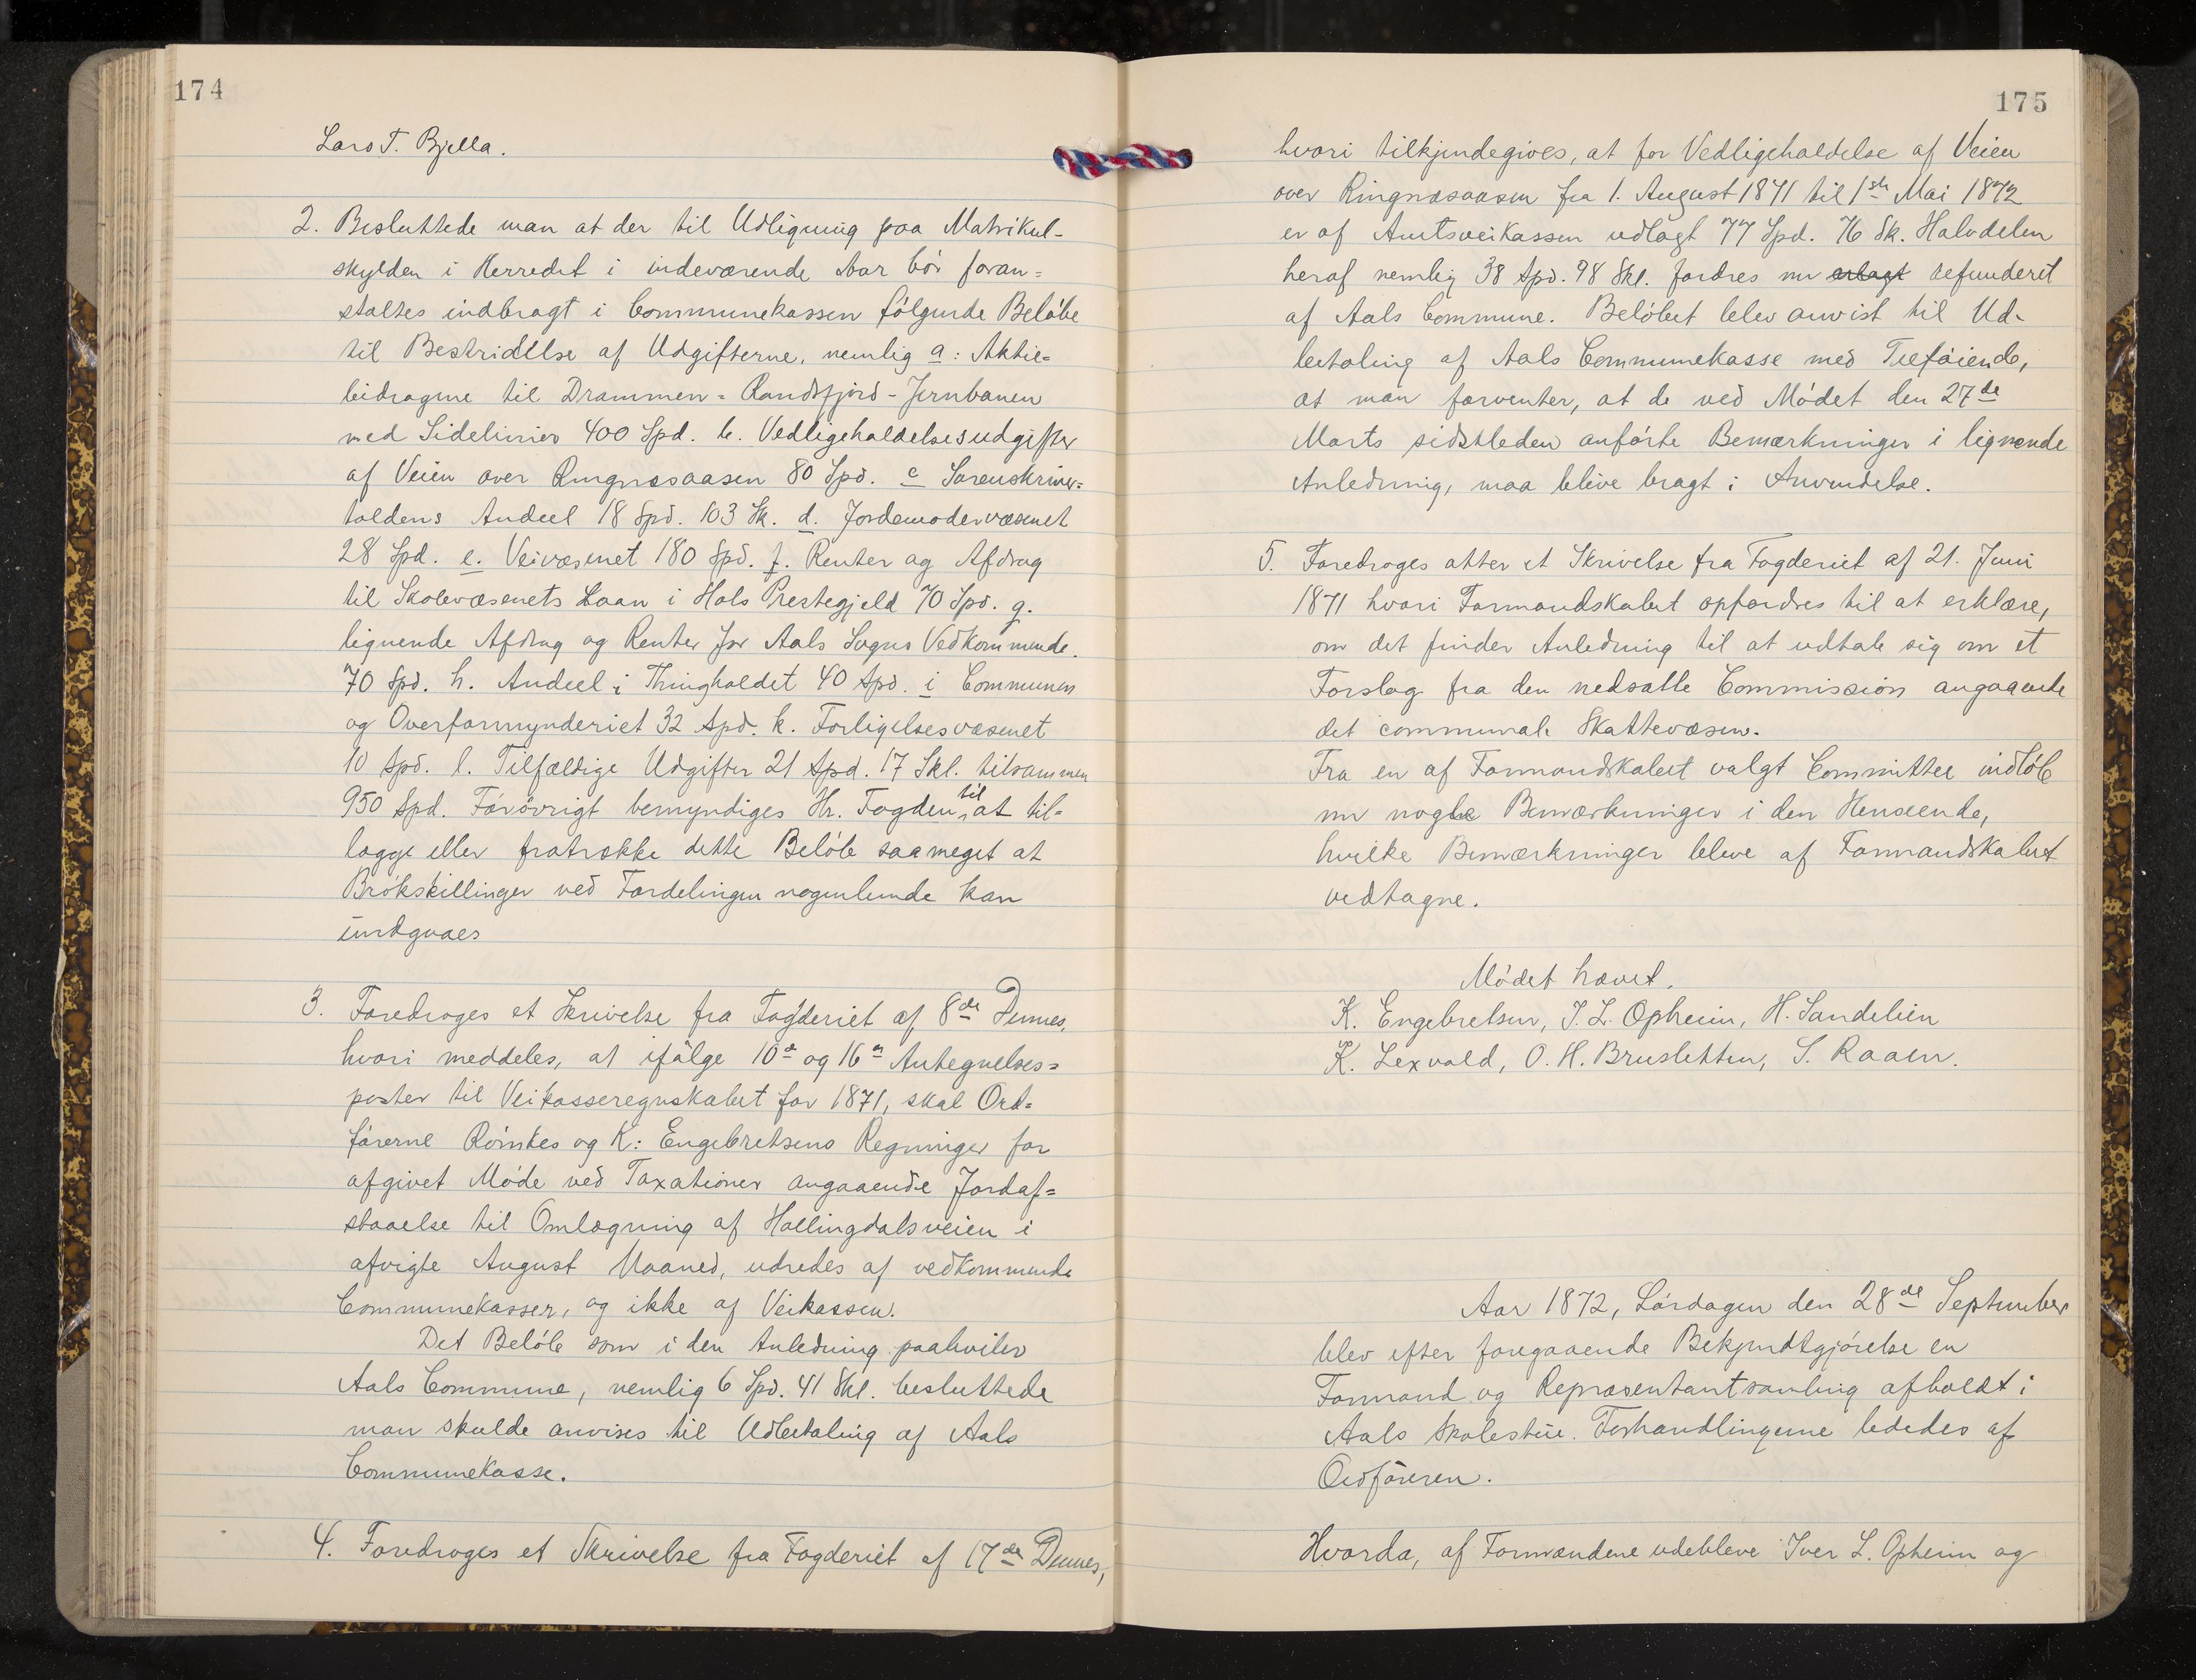 174
Lars T. Bjella.
2. Besluttede man at der til Udligning paa Matrikul-
skylden i Herredet i indeværende Aar bör foran=
staltes indbragt i Communekassen fölgende Belöbe
til Bestridelse af Udgifterne, nemlig a: Aktie=
bidragene til Drammen=Randsfjord-Jernbanen
med Sidelinier 400 Spd. b. Vedligeholdelsesudgifter
af Veien over Ringnesaasen 80 Spd. c Sorenskriver=
toldens Andeel 18 Spd. 103 Sk. d. Jordemodervæsenet
28 Spd. e. Veivæsenet 180 Spd. f. Renter og Afdrag
til Skolevæsenets Laan i Hols Prestegjeld 70 Spd. g.
lignende Afdrag og Renter for Aals Sogns Vedkommende.
70 Spd. h. Andeel i Thingholdet 40 Spd. i Communen
og Overformynderiet 32 Spd. k. Forligelsesvæsenet
10 Spd. l. Tilfældige Udgifter 21 Spd. 17 Skl. tilsammen
950 Spd. Forövrigt bemyndiges Hr. Fogden til at til=
lægge eller fratrække dette Belöb saameget at
Brökskillinger ved Fordelingen nogenlunde kan
undgaaes
3. Foredroges et Skrivelse fra Fogderiet af 8de Dennes,
hvori meddeles, at ifölge 10de og 16de Antegnelses=
poster til Veikasseregnskabet for 1871, skal Ord=
förerne Röinkes og K: Engebretsens Regninger for
afgivet Möde ved Taxationer angaaende Jordaf=
staaelse til Omlægning af Hallingdalsveien i
afvigte August Maaned, udredes af vedkommende
Communekasser, og ikke af Veikassen.
Det Belöb som i den Anledning paahviler
Aals Commune, nemlig 6 Spd. 41 Skl. besluttede
man skulde anvises til Udbetaling af Aals
Communekasse.
4. Foredroges et Skrivelse fra Fogderiet af 17de Dennes,
175
hvori tilkjendegives, at for Vedligeholdelse af Veien
over Ringnesaasen fra 1. August 1871 til 1ste Mai 1872
er af Amtsveikassen udlagt 77 Spd. 76 Sk. Halvdelen
heraf nemlig 38 Spd. 98 Skl. fordres nu erlagt refunderet
af Aals Commune. Belöbet blev anvist til Ud-
betaling af Aals Communekasse med Tilföiende,
at man forventer, at de ved Mödet den 27de
Marts sidstleden anförte Bemærkninger i lignende
Anledning, maa blive bragt i Anvendelse.
5. Foredroges atter et Skrivelse fra Fogderiet af 21. Juni
1871 hvori Formandskabet opfordres til at erklære,
om det finder Anledning til at udtale sig om et
Forslag fra den nedsatte Commission angaaende
det communale Skattevæsen.
Fra en af Formandskabet valgt Committee indlöb
nu nogle Bemærkninger i den Henseende,
hvilke Bemærkninger bleve af Formandskabet
vedtagne.
Mödet hævet.
K. Engebretsen, I. L. Opheim, H. Sandelien
K. Lexvold, O. H. Brusletten, S. Raaen.
Aar 1872, Lördagen den 28de September
blev efter foregaaende Bekjendtgjörelse en
Formand og Repræsentantsamling afholdt i
Aals Skolestue. Forhandlingerne lededes af
Ordföreren.
Hvorda, af Formændene udebleve Iver L. Opheim og